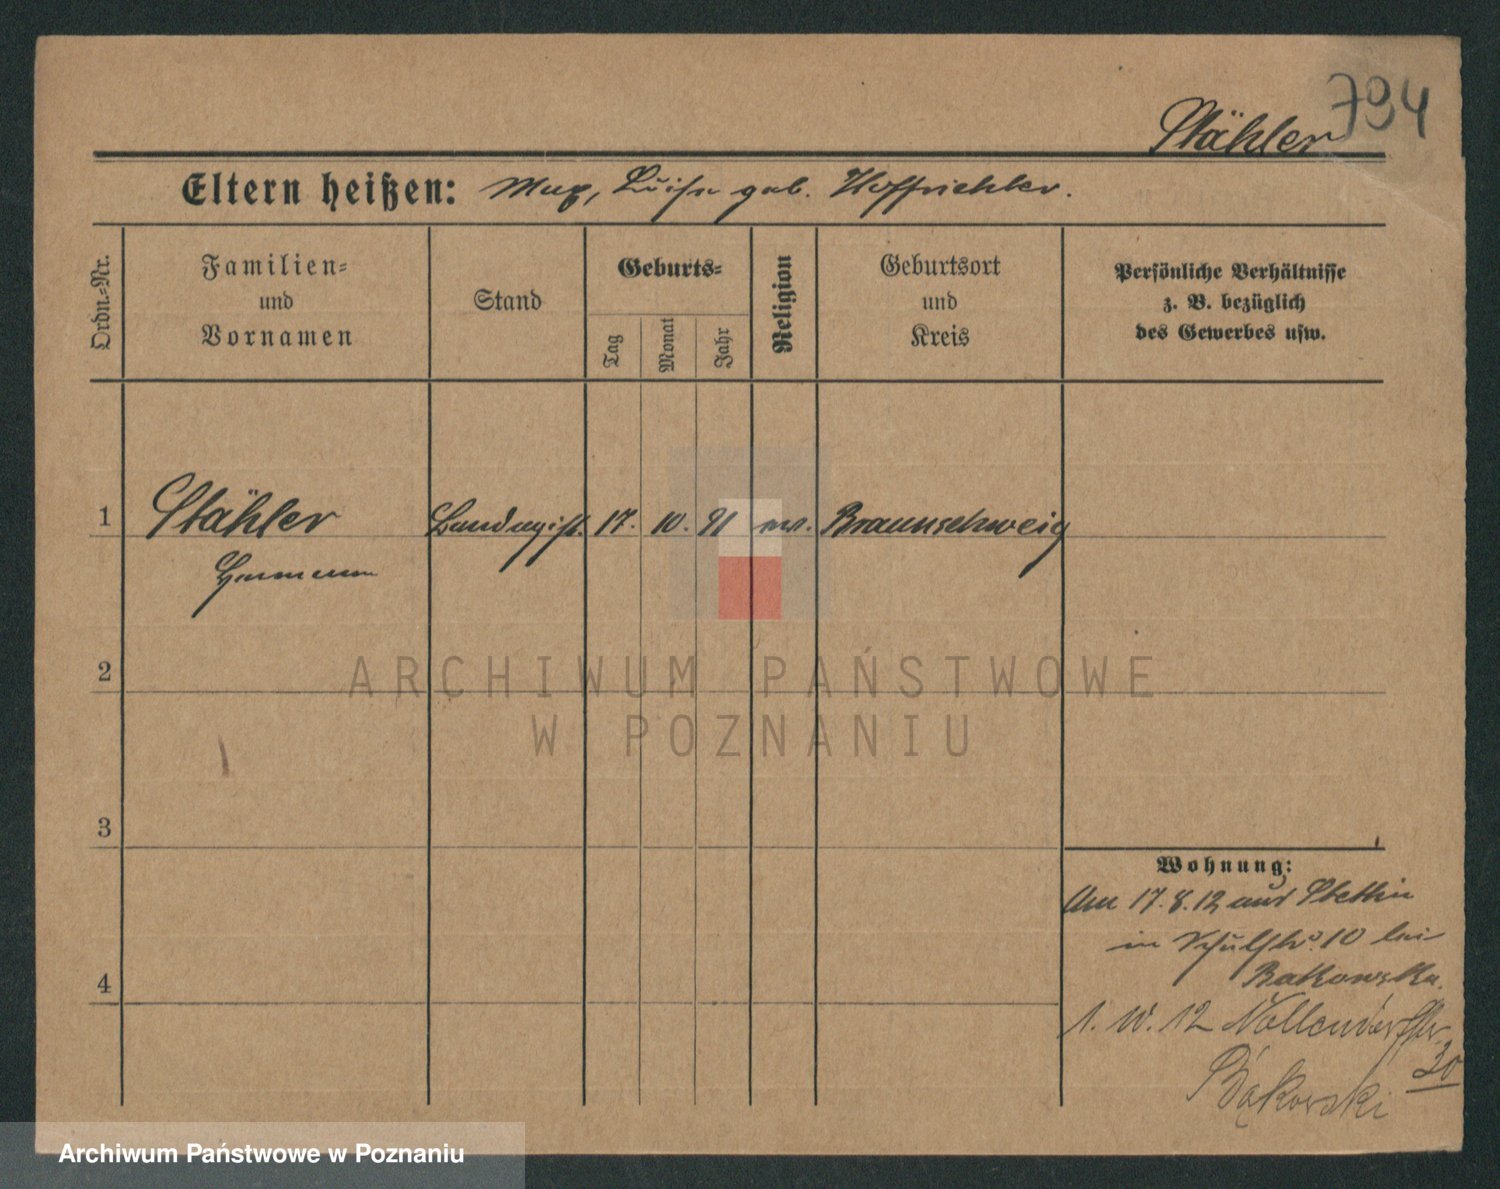 794
Stähler
Eltern heißen: Max, Luise geb. Hoffrichter.
Ordn.-Nr.
Familien-
und
Vornamen
Stand
Geburts-
Tag
Monat
Jahr
Religion
Geburtsort
und
Kreis
Persönliche Verhältnisse
z. B. bezüglich
des Gewerbes usw.
1
Stähler
Hermann
Bandagist.
17.
10.
91
ev.
Braunschweig
2
ARCHIWUM PAŃSTWOWE
W POZNANIU
3
Wohnung:
Am 17.8.12 aus Stettin
in Schulstr. 10 bei
Bakowska.
4
1. 10. 12 Nollendorfstr.
30
Bąkowski
Archiwum Państwowe w Poznaniu